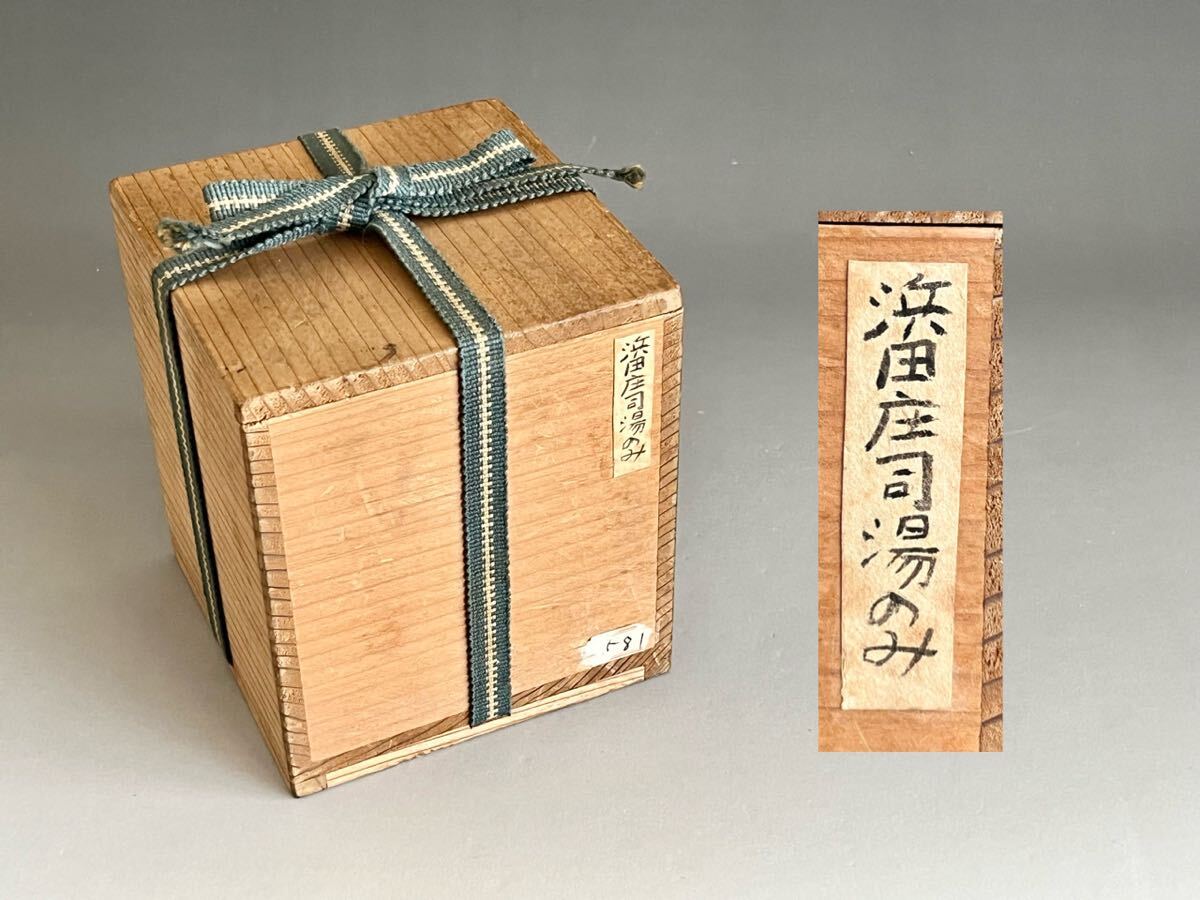 浜田庄司湯のみ
581
浜田庄司湯のみ